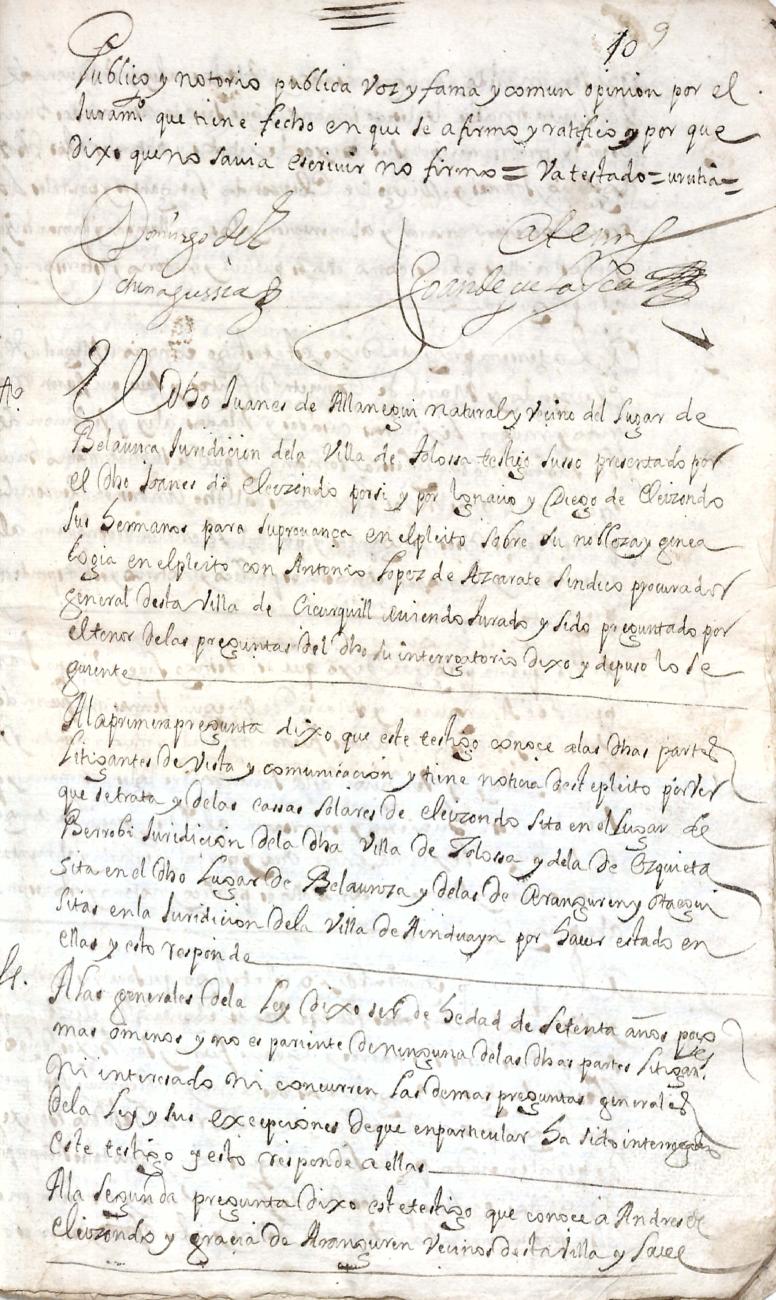 10 9
Publico y notorio publica voz y fama y comun opinion por el
Juramto que tiene fecho en que se afirmo y ratifico y por que
dixo que no savia escrivir no firmo = Va testado = urutia =
Domingo de
Ante mi
El Dho Juanes de Allanegui natural y vecino del lugar de
Belaunça Juridicion dela Villa de Tolossa testigo susso presentado por
el Dho Joanes de Eleizondo por si y por Ignacio y Diego de Eleizondo
sus hermanos para su provança en el pleito sobre su nobleza y genea
logia en el pleito con Antonio Lopez de Azcarate sindico procurador
general desta Villa de Cicurquill aviendo Jurado y sido preguntado por
el tenor delas preguntas del dho su interrogatorio dixo y depuso lo se
guiente
A la primera pregunta dixo que este testigo conoce a las dhas partes
litigantes de vista y comunicacion y tiene noticia deste pleito por ser
que se trata y de las cassas solares de Eleizondo sita en el lugar de
Berrobi Juridicion dela dha Villa de Tolossa y dela de Ezquieta
sita en el dho lugar de Belaunza y delas de Aranguren y Otaegui
sitas en la Juridicion dela Villa de Ainduayn por haver estado en
ellas y esto responde
A las generales dela ley dixo ser de hedad de setenta años poco
mas o menos y no es pariente de ninguna delas dhas partes litigantes
ni interesado ni concurren las demas preguntas generales
dela ley y sus excepciones de que en particular ha sido interrogado
este testigo y esto responde a ellas
A la segunda pregunta dixo este testigo que conoce a Andres de
Eleizondo y gracia de Aranguren vecinos desta villa y save